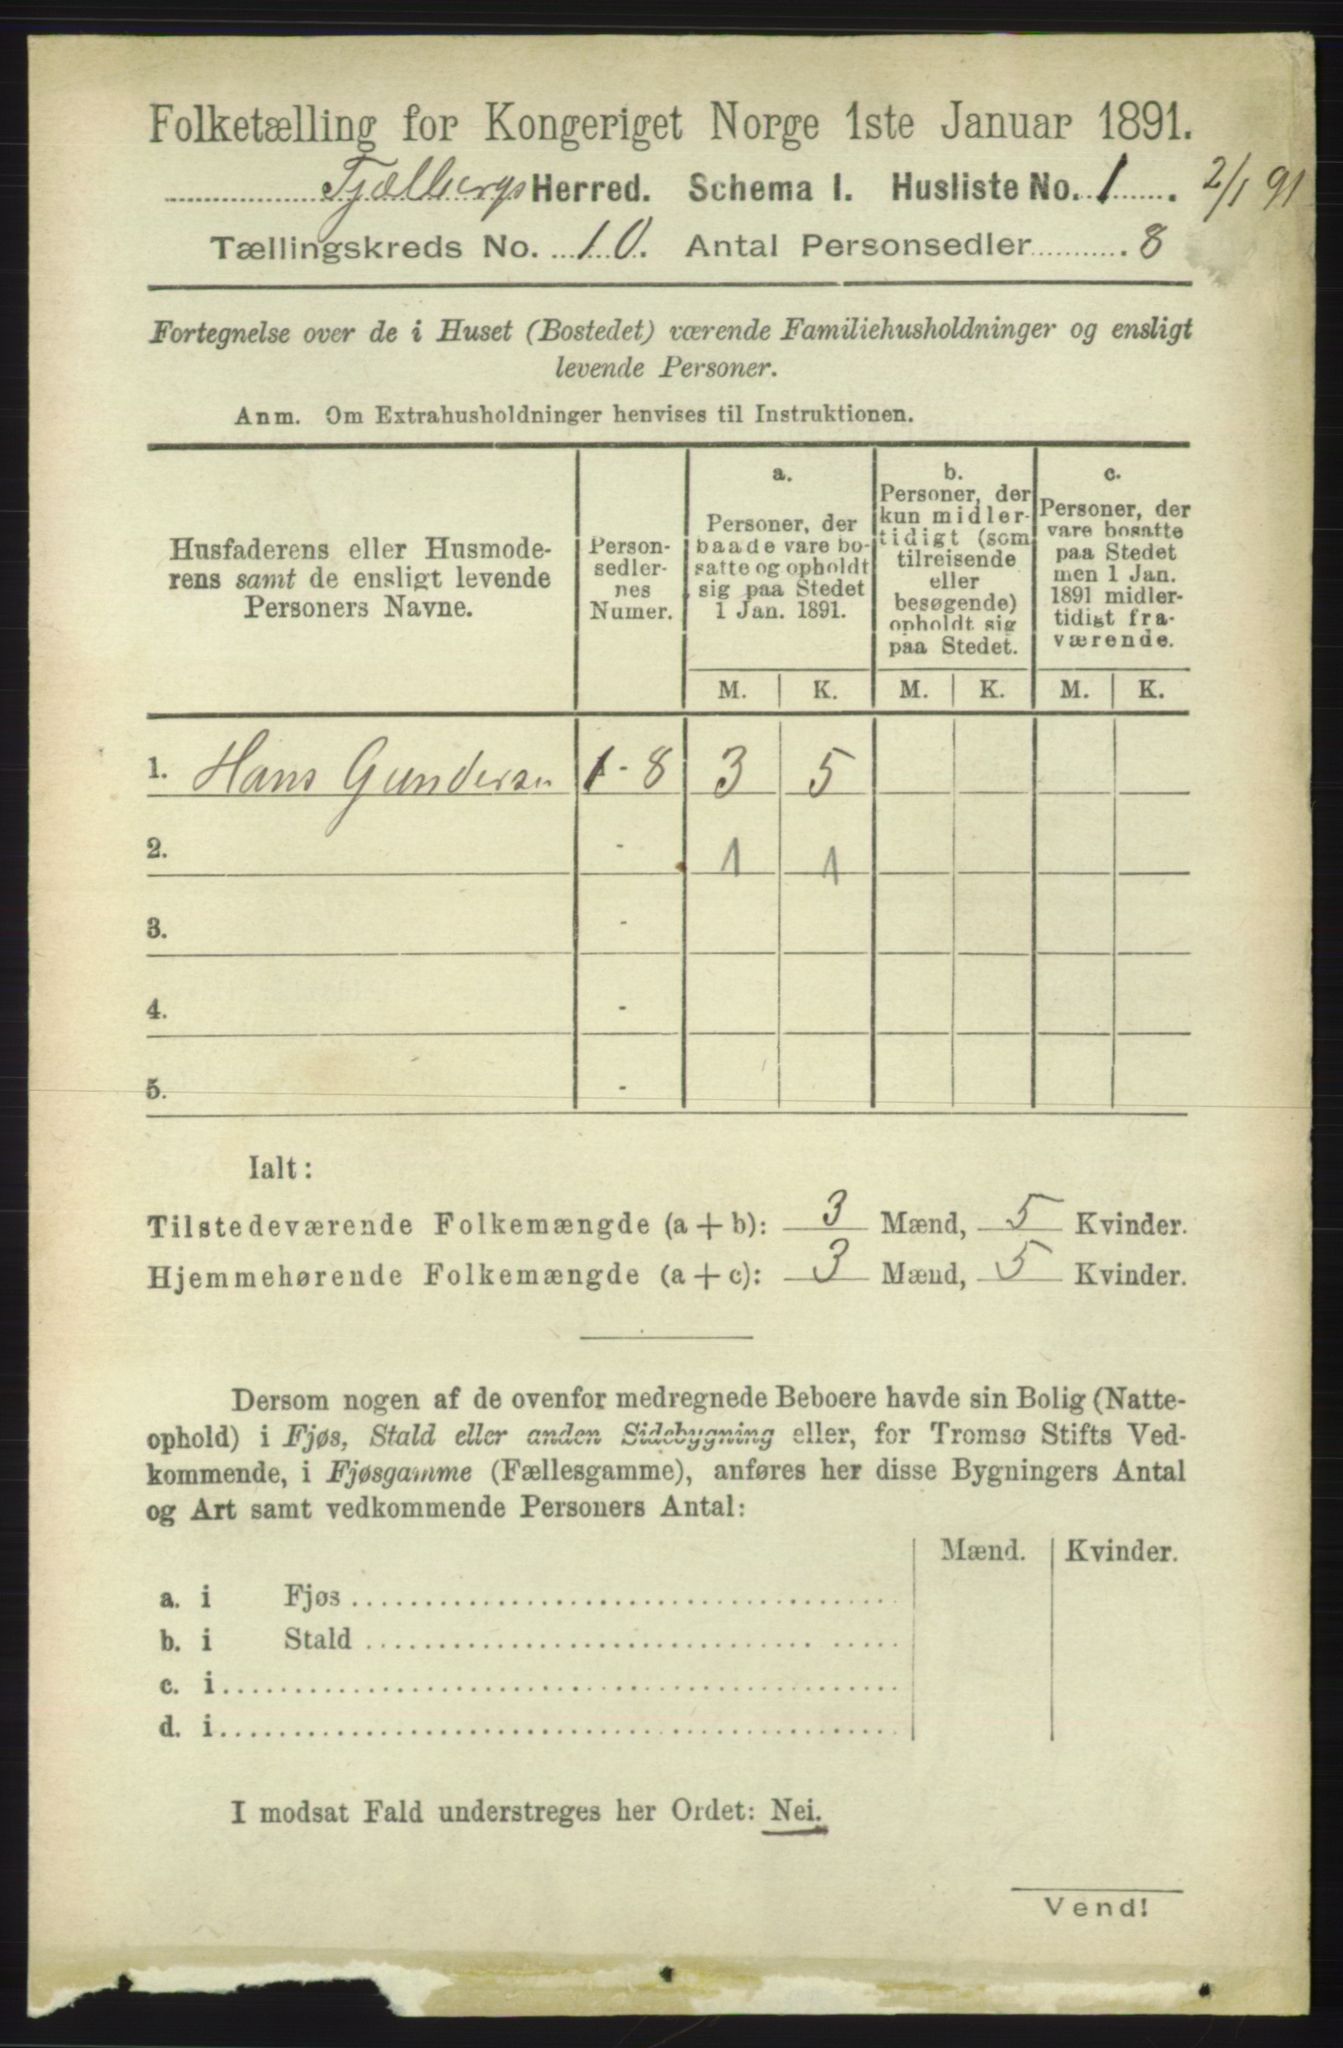 Folketælling for Kongeriget Norge 1ste Januar 1891.
Fjælbergs Herred. Schema 1. Husliste No. 1. 2/1 91
Tællingskreds No. 10. Antal Personsedler 8
Fortegnelse over de i Huset (Bostedet) værende Familiehusholdninger og ensligt
levende Personer.
Anm. Om Extrahusholdninger henvises til Instruktionen.
Husfaderens eller Husmode-
rens samt de ensligt levende
Personers Navne.
Person-
sedler-
nes
Numer.
a.
Personer, der
baade vare bo-
satte og opholdt
sig paa Stedet
1 Jan. 1891.
b.
Personer, der
kun midler-
tidigt (som
tilreisende
eller
besøgende)
opholdt sig
paa Stedet.
c.
Personer, der
vare bosatte
paa Stedet
men 1 Jan.
1891 midler-
tidigt fra-
værende.
M. K. M. K. M. K.
1. Hans Gundersen 1 - 8 3 5
2. - 1 1
3. -
4. -
5. -
Ialt:
Tilstedeværende Folkemængde (a + b): 3 Mænd, 5 Kvinder.
Hjemmehørende Folkemængde (a + c): 3 Mænd, 5 Kvinder.
Dersom nogen af de ovenfor medregnede Beboere havde sin Bolig (Natte-
ophold) i Fjøs, Stald eller anden Sidebygning eller, for Tromsø Stifts Ved-
kommende, i Fjøsgamme (Fællesgamme), anføres her disse Bygningers Antal
og Art samt vedkommende Personers Antal:
Mænd. Kvinder.
a. i Fjøs
b. i Stald
c. i
d. i
I modsat Fald understreges her Ordet: Nei.
Vend!